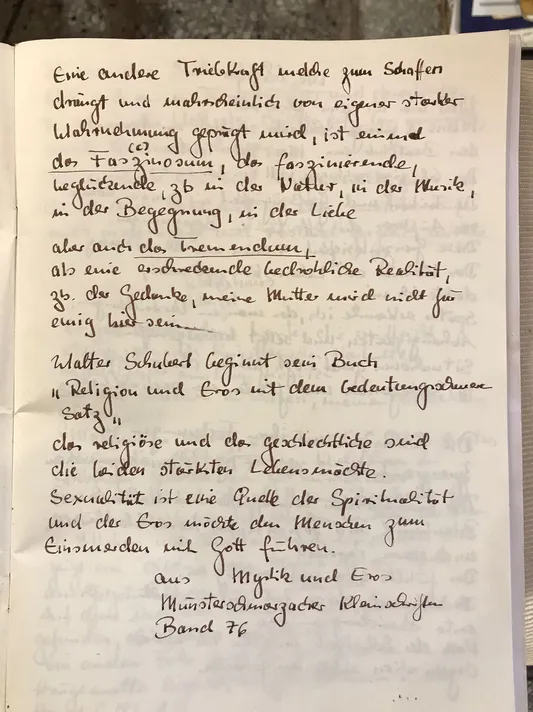 Eine andere Triebkraft welche zum Schaffen
drängt und wahrscheinlich von eigener starker
Wahrnehmung geprägt wird, ist einmal
(c)
das Faszinosum, das faszinierende,
beglückende, zb in der Natur, in der Musik,
in der Begegnung, in der Liebe
aber auch das Tremendum,
als eine erschreckende bedrohliche Realität,
zb. der Gedanke, meine Mutter wird nicht für
ewig hier sein
Walter Schubert beginnt sein Buch
"Religion und Eros mit dem bedeutungsschweren
Satz"
das religiöse und das geschlechtliche sind
die beiden stärksten Lebensmächte.
Sexualität ist eine Quelle der Spiritualität
und der Eros möchte den Menschen zum
Einswerden mit Gott führen.
aus Mystik und Eros
Münsterschwarzacher Kleinschriften
Band 76